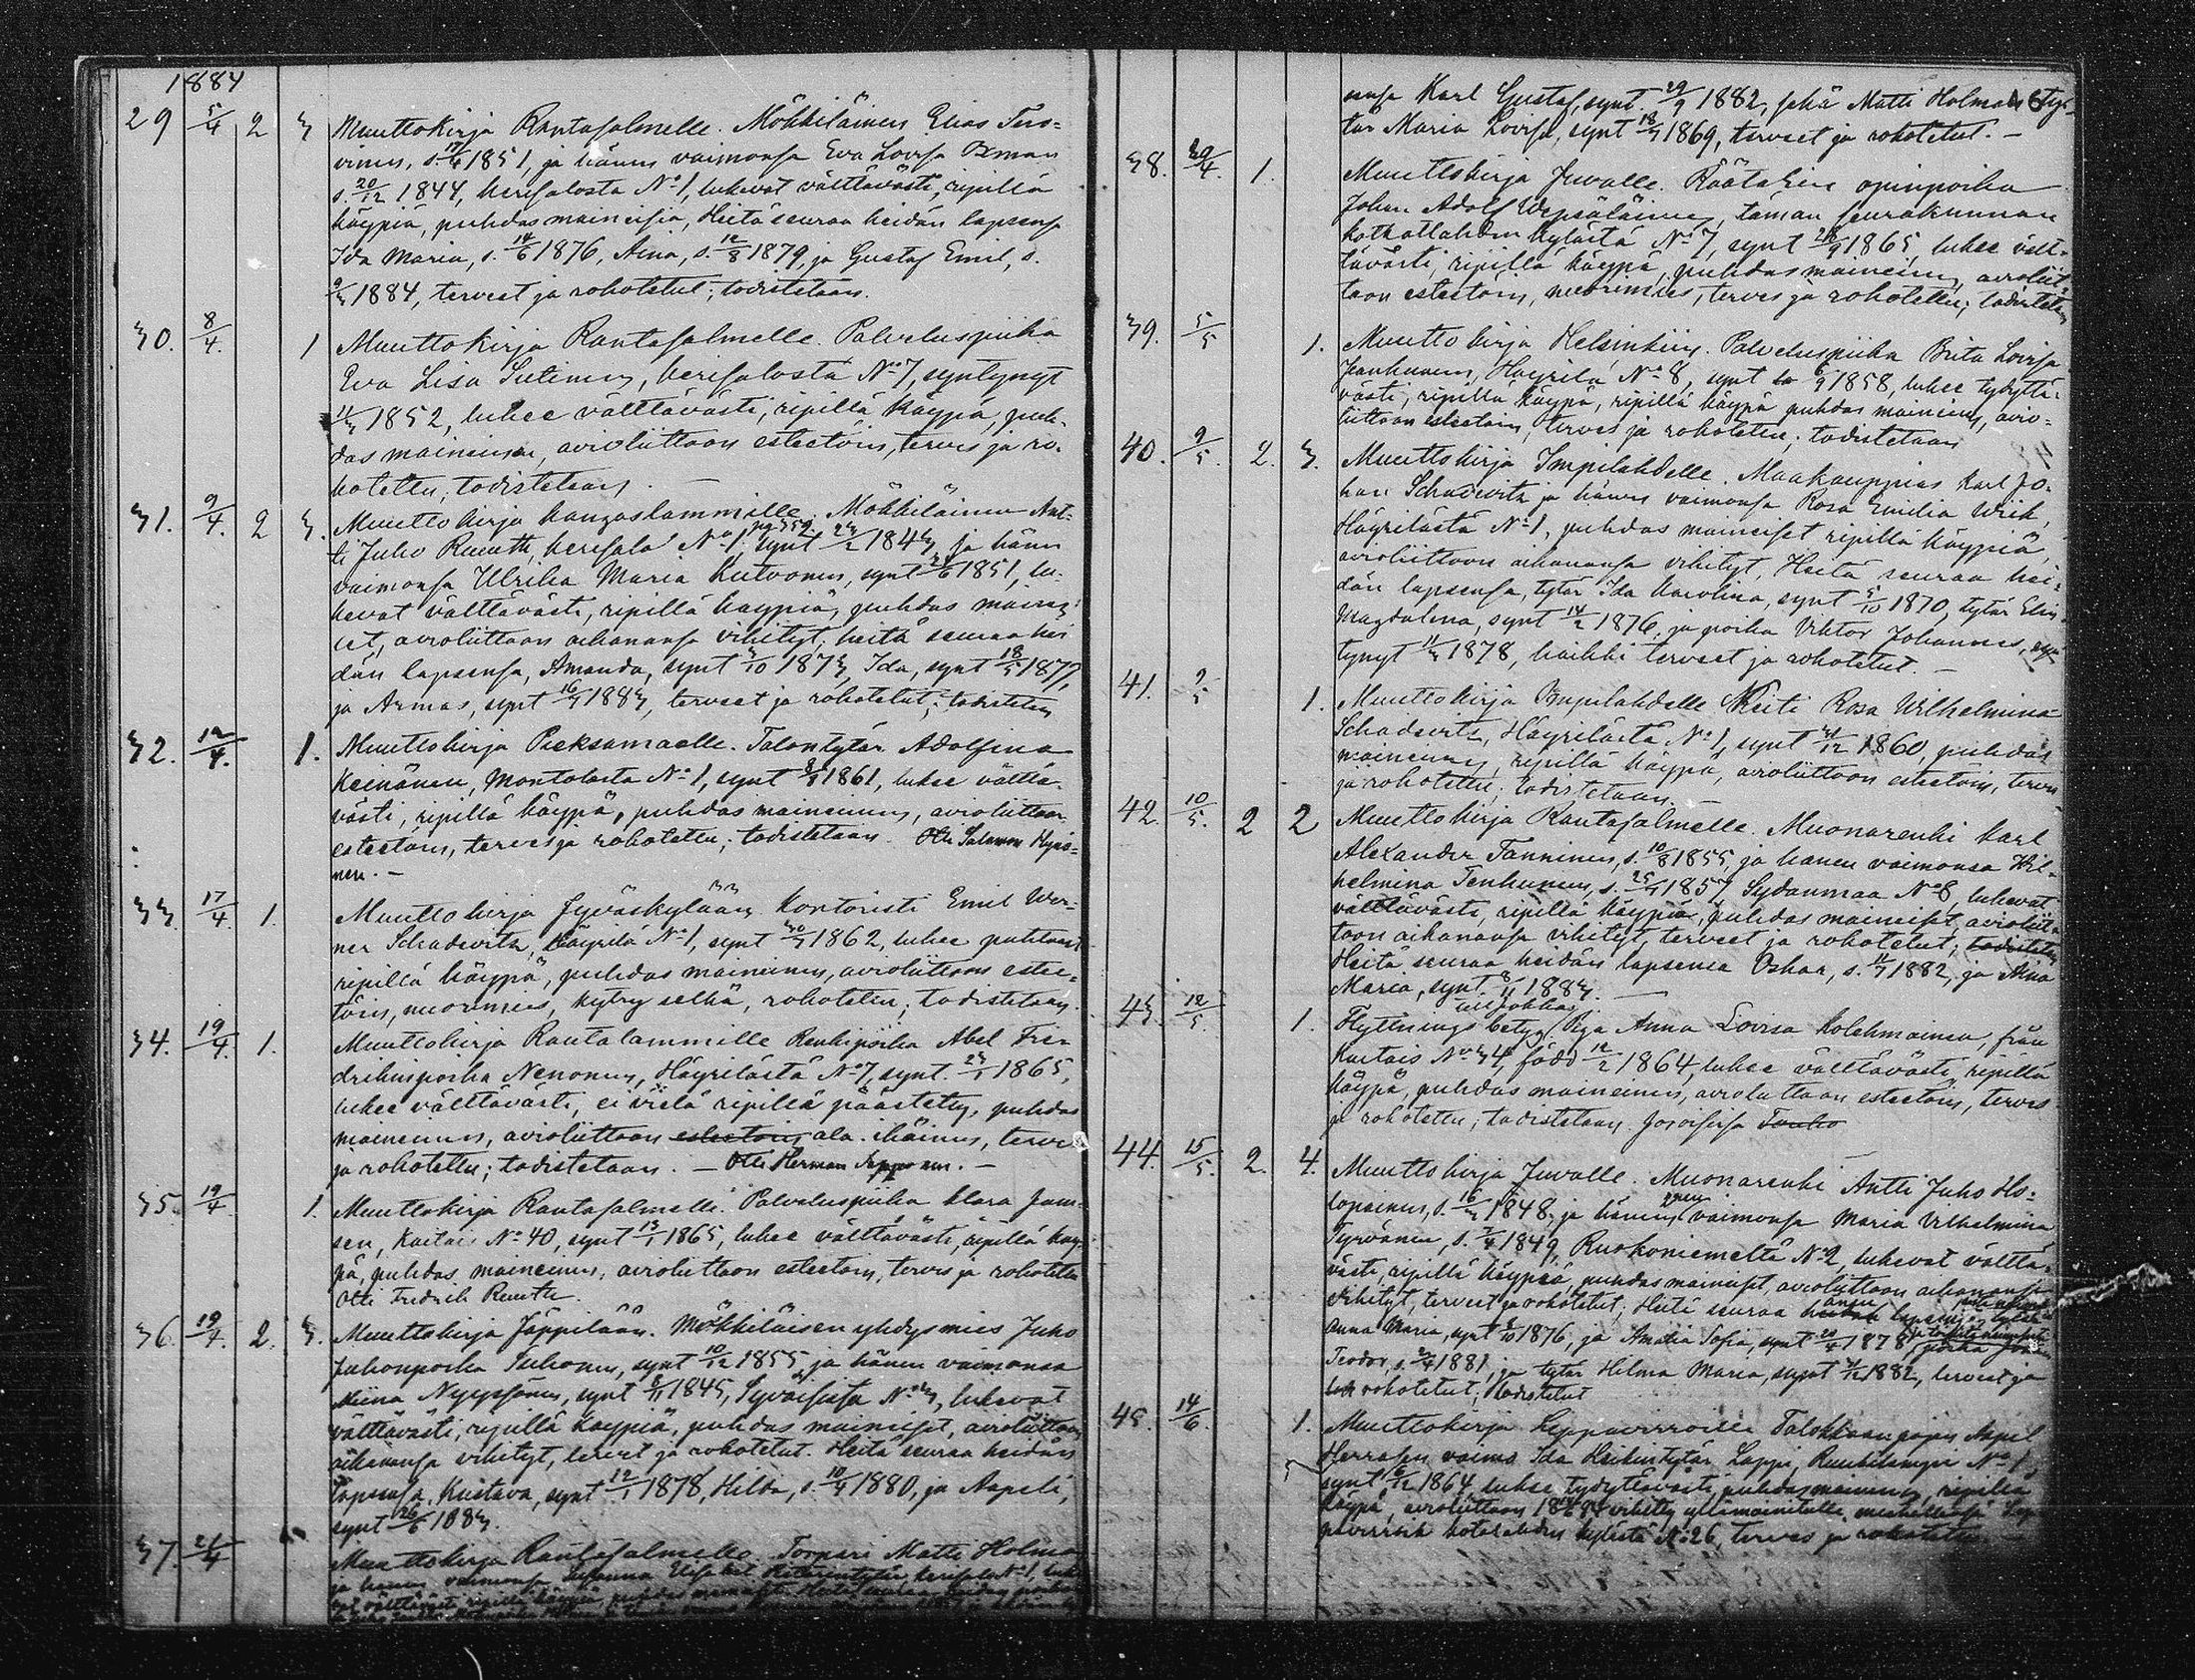 1884
29 5/4 2 3 Muuttokirja Rantasalmelle. Mökkiläinen Elias Tuo-
vinen, s. 17/4 1851, ja hänen vaimonsa Eva Lovisa
s. 20/12 1844, Kerisalosta No 1, lukevat välttävästi, ripillä
käypiä, puhdas maineisia, Heitä seuraa heidän lapsensa
Ida Maria, s. 14/6 1876, Aina, s. 12/8 1879, ja Gustaf Emil, s.
9/3 1884, terveet ja rokotetut; todistetaan.
30. 8/4. 1 Muuttokirja Rantasalmelle. Palveluspiika
Eva Lisa Sutinen, Kerisalosta No 7, syntynyt
1852, lukee välttävästi, ripillä käypä, puh-
das maineinen, avioliittoon esteetöin, terves ja ro-
kotettu, todistetaan. —
31. 9/4. 2 3. Muuttokirja Kangaslammille. Mökkiläinen Ant-
ti Juho Reuutti, Kerisalo No 1, pg 359. synt 23/2 1843, ja hänen
vaimonsa Ulrika Maria Kutvonen, synt 1851, lu-
kevat välttävästi, ripillä käypiä, puhdas mainei-
set, avioliittoon aikanansa vihityt, heitä seuraa hei
dän lapsensa, Amanda, synt 3/10 1873, Ida, synt 18/5 1877,
ja Armas, synt 16/3 1883, terveet ja rokotetut; todistetaan
32. 12/4. 1. Muuttokirja Pieksämaalle. Talontytär Adolfina
Keinänen, Montolasta No 1, synt 1861, lukee välttä-
västi, ripillä käypä, puhdas maineinen, avioliittoon
esteetöin, terves ja rokotettu; todistetaan. Otti Salomon Hyvö-
nen. —
33. 17/4. 1. Muuttokirja Jyväskylään. Kontoristi Emil Wer-
ner Schadevitz, Häyrilä No 1, synt 30/3 1862, lukee puhtaasti
ripillä käypä, puhdas maineinen, avioliittoon estee-
töin, nuorimies, kytry selkä, rokotettu; todistetaan.
34. 19/4. 1. Muuttokirja Rautalammille Renkipoika Abel Fre-
drikinpoika Nenonen, Häyrilästä No 7, synt. 23/1 1865,
lukee välttävästi, ei vielä ripillä päästetty, puhdas
maineinen, avioliittoon esteetöin ala-ikäinen, terve
ja rokotettu; todistetaan. — Otti Herman Lapponen. —
35. 19/4 1. Muuttokirja Rantasalmelle. Palveluspiika Klara Jam-
sen, Kaitais No 40, synt 13/1 1865, lukee välttävästi, ripillä käy-
pä, puhdas maineinen, avioliittoon esteetöin, terves ja rokotettu
Otti Fredrik Reuutti.
36. 19/4. 2. 3. Muuttokirja Jäppilään. Mökkiläisen yhdysmies Juho
Juhonpoika Tuhonen, synt 10/12 1855, ja hänen vaimonsa
Miina Nyyssönen, synt 8/11 1845, Syväisistä No 3, lukevat
välttävästi, ripillä käypiä, puhdas maineiset, avioliittoon
aikanansa vihityt, terveet ja rokotetut. Heitä seuraa heidän
lapsensa, Kustava, synt 12/1 1878, Hilda, s. 10/4 1880, ja Aapeli,
synt 26/6 1883.
37. 26/4 Muuttokirja Rantasalmelle. Torpari Matti Holma
ja hänen vaimonsa Susanna Elisabet Kerisalo No 1, luke
vat välttävästi ripillä käypiä, puhdas maineiset. Heitä seuraa heidän poikan
sensa Karl Gustaf, synt. 29/9 1882, sekä Matti Holman tyt-
tär Maria Lovisa, synt 18/3 1869, terveet ja rokotetut. —
38. 30/4. 1. Muuttokirja Juvalle. Räätälin opinpoika
Johan Adolf Wepsäläinen, tämän seurakunnan
Kotkatlahden kylästä No 7, synt 1865, lukee vält-
tävästi, ripillä käypä, puhdas maineinen, avioliit-
toon esteetöin, nuorimies, terves ja rokotettu; todistetaan
39. 5/5 1. Muuttokirja Helsinkiin. Palveluspiika Brita Lovisa
Jauhunen, Häyrilä No 8, synt 6/9 1858, lukee tydyttä-
västi, ripillä käypä, ripillä käypä puhdas maineinen, avio-
liittoon esteetöin, terves ja rokotettu; todistetaan
40. 9/5. 2. 3. Muuttokirja Impilahdelle. Maakauppias Karl Jo-
han Schadevitz ja hänen vaimonsa Rosa Emilia Wiik,
Häyrilästä No 1, puhdas maineiset ripillä käypiä,
avioliittoon aikanansa vihityt, Heitä seuraa hei-
dän lapsensa, tytär Ida Karolina, synt 5/10 1870, tytär Elin
Magdalena, synt 14/2 1876, ja poika Viktor Johannes, syn
tynyt 11/3 1878, kaikki terveet ja rokotetut. —
41. 9/5 1. Muuttokirja Impilahdelle Neiti Rosa Wilhelmina
Schadevitz, Häyrilästä No 1, synt 31/12 1860, puhdas
maineinen, ripillä käypä, avioliittoon esteetöin, terves
ja rokotettu; todistetaan. —
42. 10/5. 2 2 Muuttokirja Rantasalmelle. Muonarenki Karl
Alexander Tanninen, s. 10/8 1855, ja hänen vaimonsa Wil-
helmina Tenhunen, s. 1857 Sydänmaa No 8, lukevat
välttävästi, ripillä käypiä, puhdas maineiset, avioliit-
toon aikanansa vihityt, terveet ja rokotetut; todistetaan
Heitä seuraa heidän lapsensa Oskar, s. 11/7 1882, ja Mina
Maria, synt. 8/11 1883. —
43. 12/5. 1. Flyttningsbetyg till Jokkas Piga Anna Lovisa Kolehmainen, från
Kaitais No 34, född 12/2 1864, lukee välttävästi, ripillä
käypä, puhdas maineinen, avioliittoon esteetöin, terves
ja rokotettu; todistetaan. Joroisissa Touko
44. 15/5. 2. 4. Muuttokirja Juvalle. Muonarenki Antti Juho Ho-
lopainen, s. 16/3 1848, ja hänen vaimonsa Maria Vilhelmina
Tyrväinen, s. 1849, Ruokoniemeltä No 2, lukevat välttä-
västi, ripillä käypiä, puhdas maineiset, avioliittoon aikanansa
vihityt, terveet ja rokotetut; Heitä seuraa
Anna Maria, synt 1876, ja Amalia Sofia, synt 20/4 1878
Teodor, s. 1881, ja tytär Hilma Maria, synt 1882, terveet ja
rokotetut; todistetut
45. 14/6. 1. Muuttokirja Leppävirroille Talokkaan pojan Aapel
Herrasen vaimo Ida Heikintytär Lappi, Ruuhilampi No 1
synt 6/12 1864, lukee tydyttävästi, puhdas maineinen, ripillä
käypä, avioliittoon vihitty yllämainitulle miehellensä Lep
pävirroik Kotalahden kylästä No 26, terves ja rokotettu